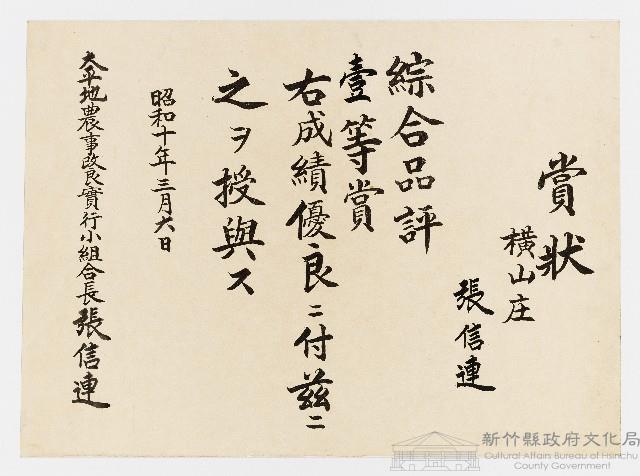 賞狀
橫山庄
張信連
綜合品評
壹等賞
右成績優良ニ付茲ニ
之ヲ授與ス
昭和十年三月六日
大平地農事改良實行小組合長張信連
新竹縣政府文化局
Cultural Affairs Bureau of Hsinchu
County Government